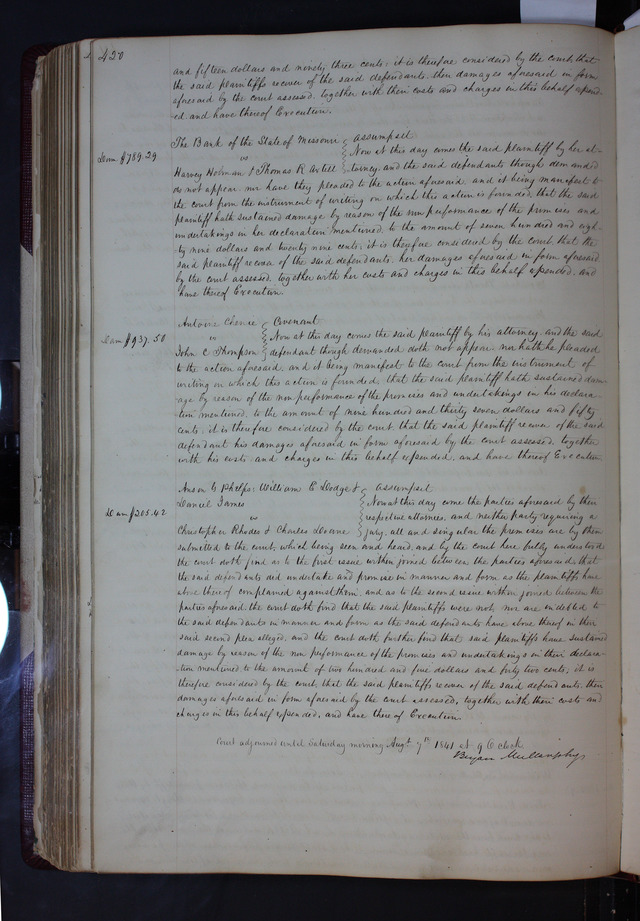 420
and fifteen dollars and ninety three cents; it is therefore considered by the court, that
the said plaintiffs recover of the said defendants, their damages aforesaid in form
aforesaid by the court assessed, together with their costs and charges in this behalf expend-
ed and have thereof Execution.
The Bank of the State of Missouri } assumpsit
Dam $789.29
vs } Now at this day comes the said plaintiff by her at-
Harvey Holman & Thomas R } torney, and the said defendants though demanded
do not appear, nor have they pleaded to the action aforesaid, and it being manifest to
the court from the instrument of writing on which this action is founded, that the said
plaintiff hath sustained damage by reason of the non performance of the promises and
undertakings in her declaration mentioned, to the amount of seven hundred and eigh-
ty nine dollars and twenty nine cents; it is therefore considered by the court, that the
said plaintiff recover of the said defendants, her damages aforesaid in form aforesaid
by the court assessed, together with her costs and charges in this behalf expended, and
have thereof Execution.
Antoine Chenie } Covenant
Dam $937.50
vs } Now at this day comes the said plaintiff by his attorney, and the said
John C Thompson } defendant though demanded doth not appear, nor hath he pleaded
to the action aforesaid, and it being manifest to the court from the instrument of
writing on which this action is founded, that the said plaintiff hath sustained dam-
age by reason of the non performance of the promises and undertakings in his declara-
tion mentioned, to the amount of nine hundred and thirty seven dollars and fifty
cents, it is therefore considered by the court, that the said plaintiff recover of the said
defendant his damages aforesaid in form aforesaid by the court assessed, together
with his costs and charges in this behalf expended, and have thereof Execution
Anson G Phelps, William E Dodge & } assumpsit
Daniel James } Now at this day come the parties aforesaid by their
Dam $205.42
vs } respective attornies, and neither party requiring a
Christopher Rhodes & Charles } jury, all and singular the premises are by them
submitted to the court, which being seen and heard, and by the court here fully understood
the court doth find as to the first issue within joined between the parties aforesaid, that
the said defendants did undertake and promise in manner and form as the plaintiffs have
above thereof complained against them, and as to the second issue within joined between the
parties aforesaid, the court doth find that the said plaintiffs were not, nor are indebted to
the said defendants in manner and form as the said defendants have above thereof in their
said second plea alleged, and the court doth further find that said plaintiffs have sustained
damage by reason of the non performance of the promises and undertakings in their declara-
tion mentioned to the amount of two hundred and five dollars and forty two cents; it is
therefore considered by the court, that the said plaintiffs recover of the said defendants, their
damages aforesaid in form aforesaid by the court assessed, together with their costs and
charges in this behalf expended, and have thereof Execution.
Court adjourned until Saturday morning Augt 7th 1841 at 9 O'clock
Bryan Mullanphy